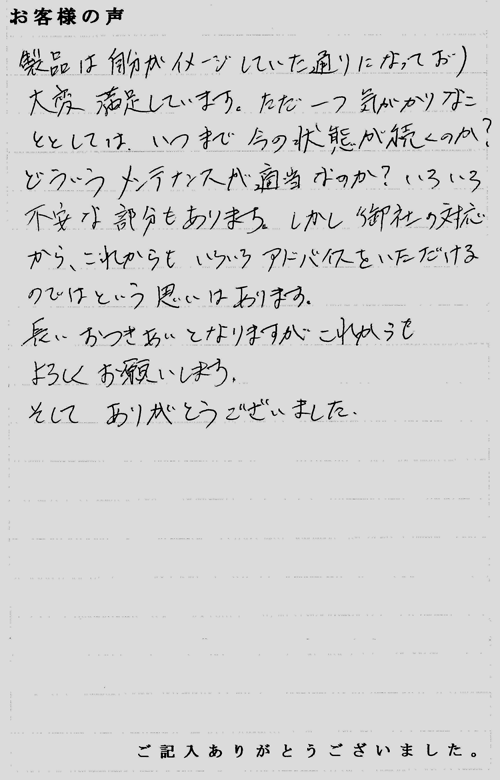 お客様の声
製品は自分がイメージしていた通りになっており
大変満足しています。ただ一つ気がかりなこ
ととしては、いつまで今の状態が続くのか?
どういうメンテナンスが適当なのか?いろいろ
不安な部分もあります。しかし御社の対応
から、これからもいろいろアドバイスをいただける
のではという思いはあります。
長いおつきあいとなりますがこれからも
よろしくお願いします。
そしてありがとうございました。
ご記入ありがとうございました。